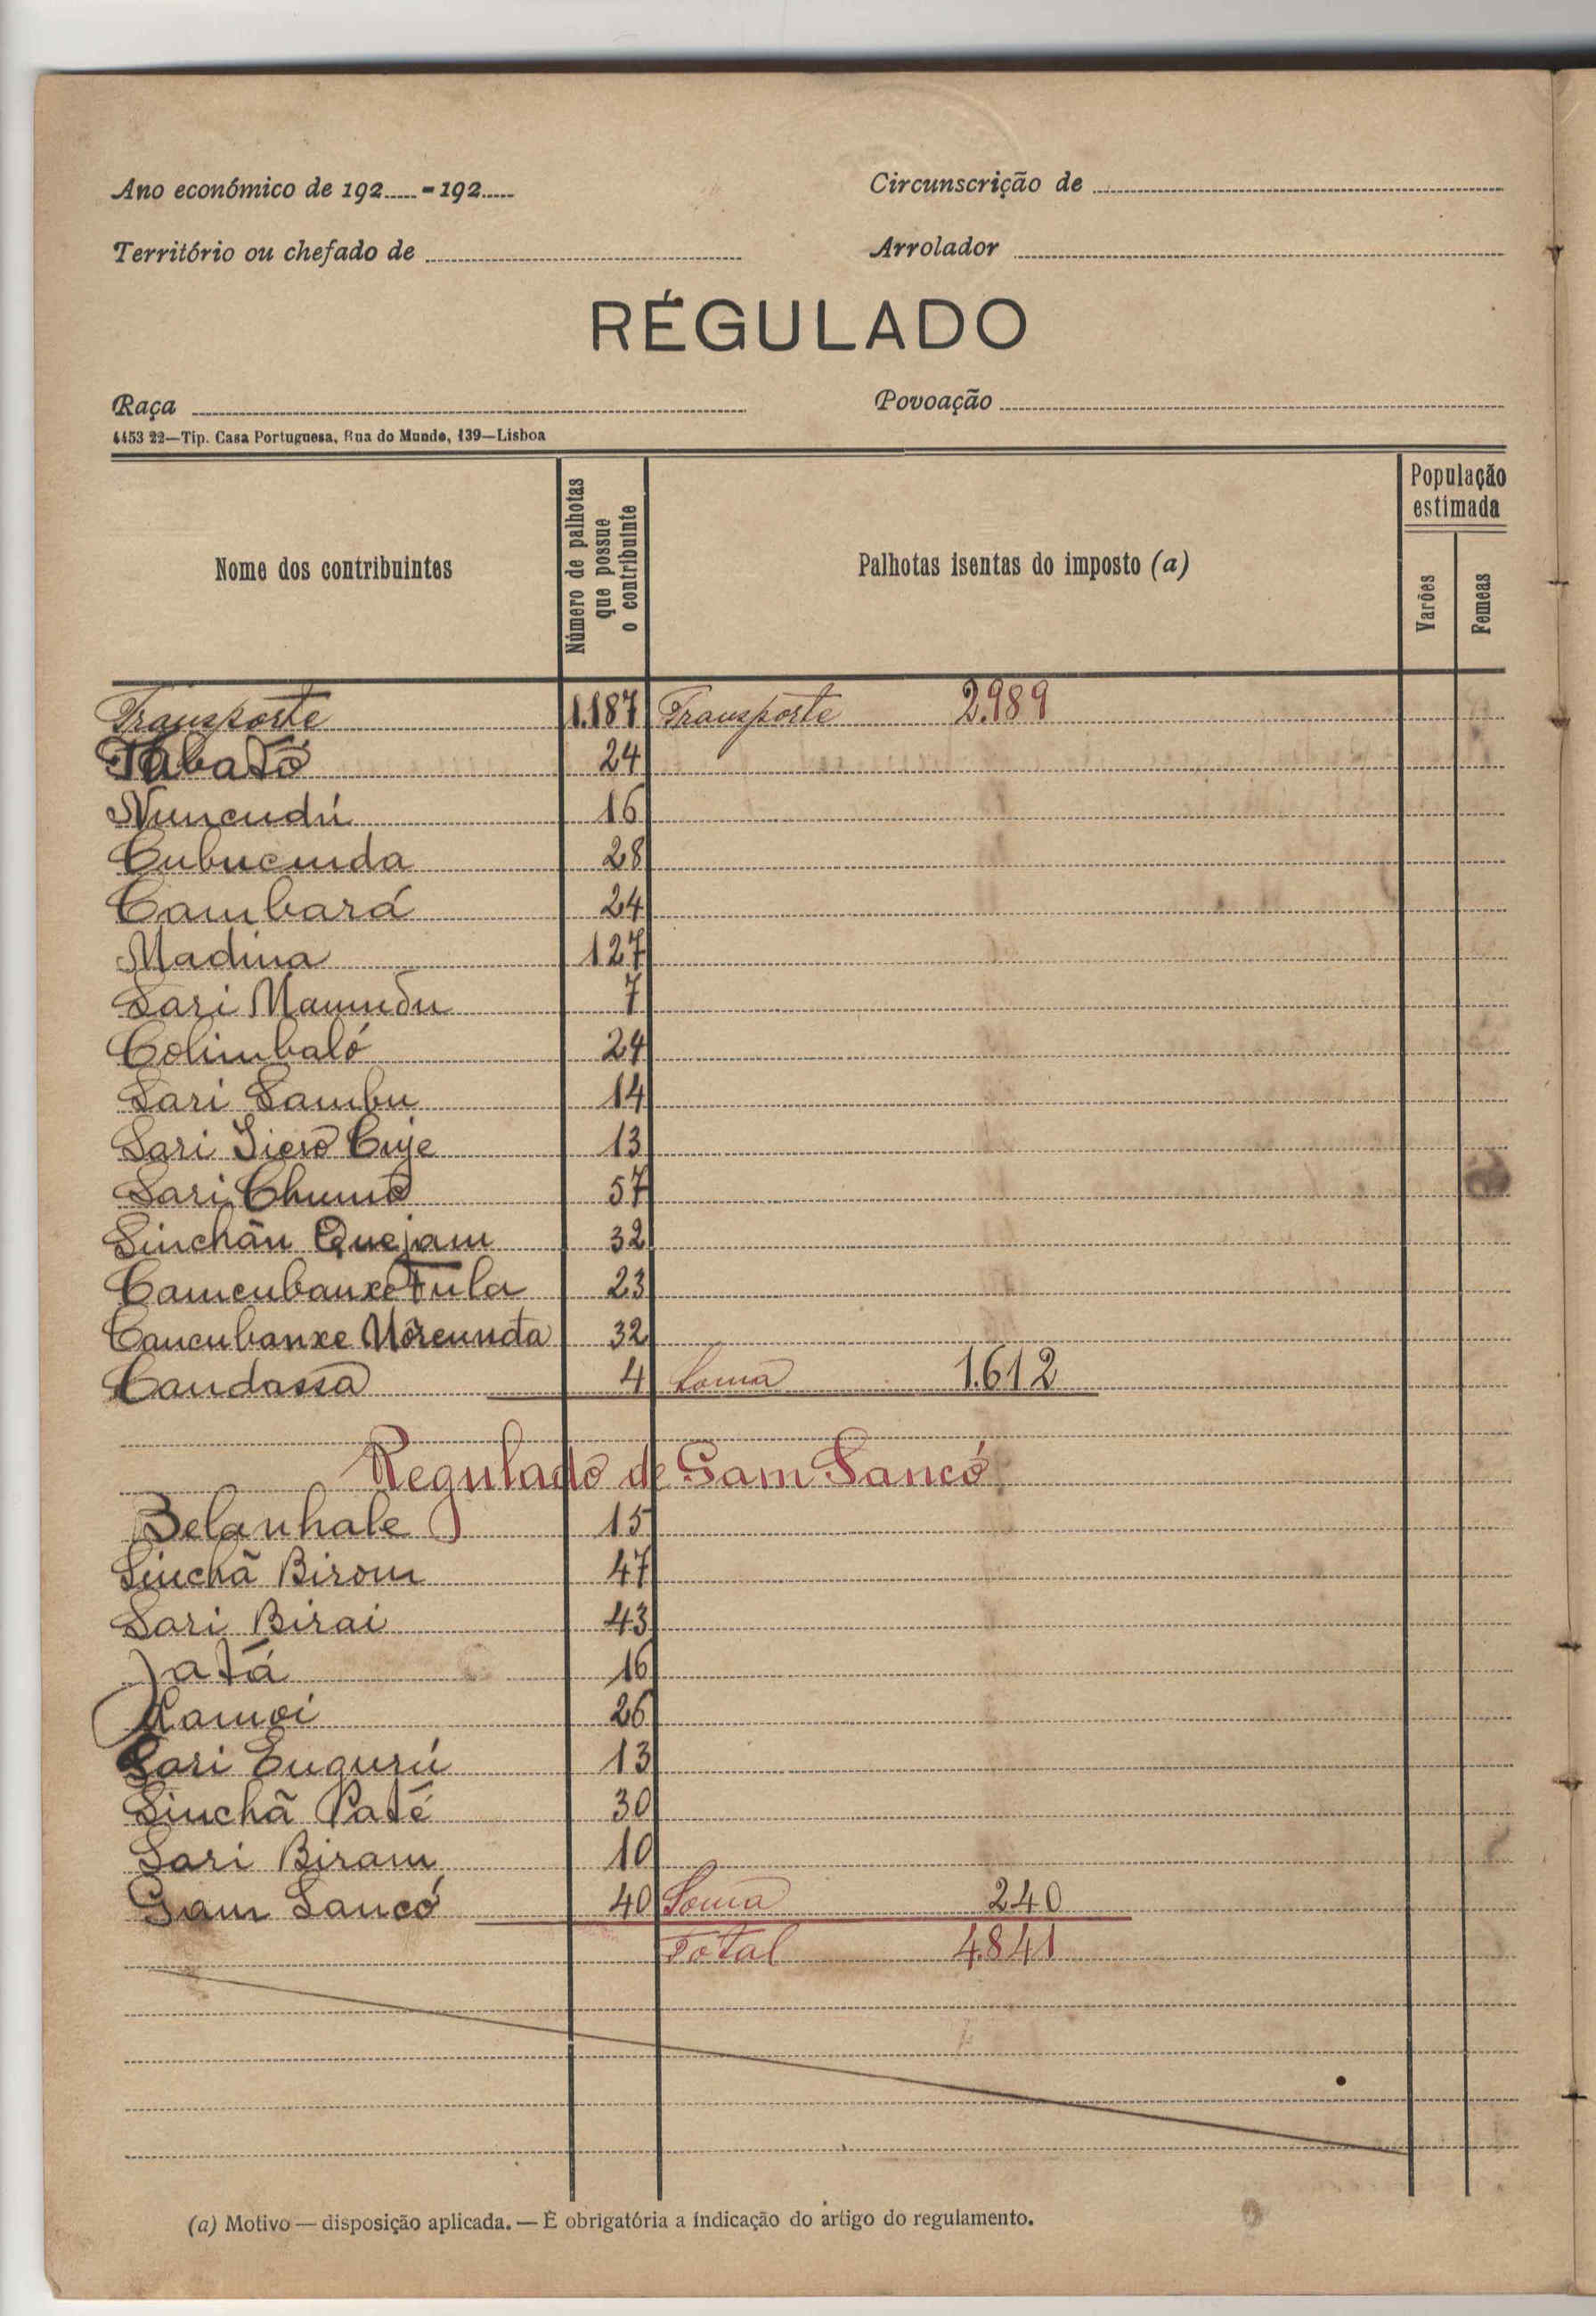 Ano económico de 192.....-192..... Circunscrição de
Território ou chefado de Arrolador
RÉGULADO
Raça Povoação
4453 22—Tip. Casa Portuguesa, Rua do Mundo, 139—Lisboa
Nome dos contribuintes
Número de palhotas que possue o contribuinte
Palhotas isentas do imposto (a)
População estimada
Varões
Femeas
Transporte 1.187 Transporte 2.989
Tabató 24
Nuncudú 16
Cubucunda 28
Cambará 24
Madina 127
Sari Mamudu 7
Colimbaló 24
Sari Sambu 14
Sari Sierô Cuje 13
Sari Chumo 57
Sinchãn Quejam 32
Camcubanxe Fula 23
Cancubanxe Morcunda 32
Candassa 4 Soma 1.612
Regulado de Gam Sancó
Belanhale 15
Sinchã Birom 47
Sari Birai 43
Jatá 16
Hamoi 26
Sari Enguru 13
Sinchã Paté 30
Sari Biram 10
Gam Sancó 40 Soma 240
Total 4.841
(a) Motivo — disposição aplicada. — É obrigatória a indicação do artigo do regulamento.